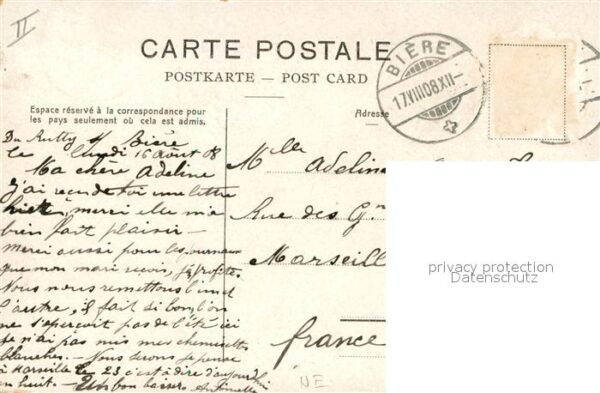 II
CARTE POSTALE
POSTKARTE — POST CARD
Espace réservé à la correspondance pour
les pays seulement où cela est admis.
Adresse
BIÈRE
17.VIII08.XII-
Bière
le lundi 16 août 08
Ma chère Adeline
j'ai reçu de toi une lettre
hier, merci elle m'a
bien fait plaisir —
merci aussi pour les journaux
que mon mari reçois, j'en profite.
Nous nous remettons l'un et
l'autre, il fait si bon, l'on
ne s'aperçoit pas de l'été ici
je n'ai pas mis mes chemisettes
blanches. — Nous serons je pense
à Marseille le 23 c'est à dire d'aujourd'hui
en huit. — Un bon baiser
Mlle Adeline
Rue des Gn
Marseill
france
privacy protection
Datenschutz
NE